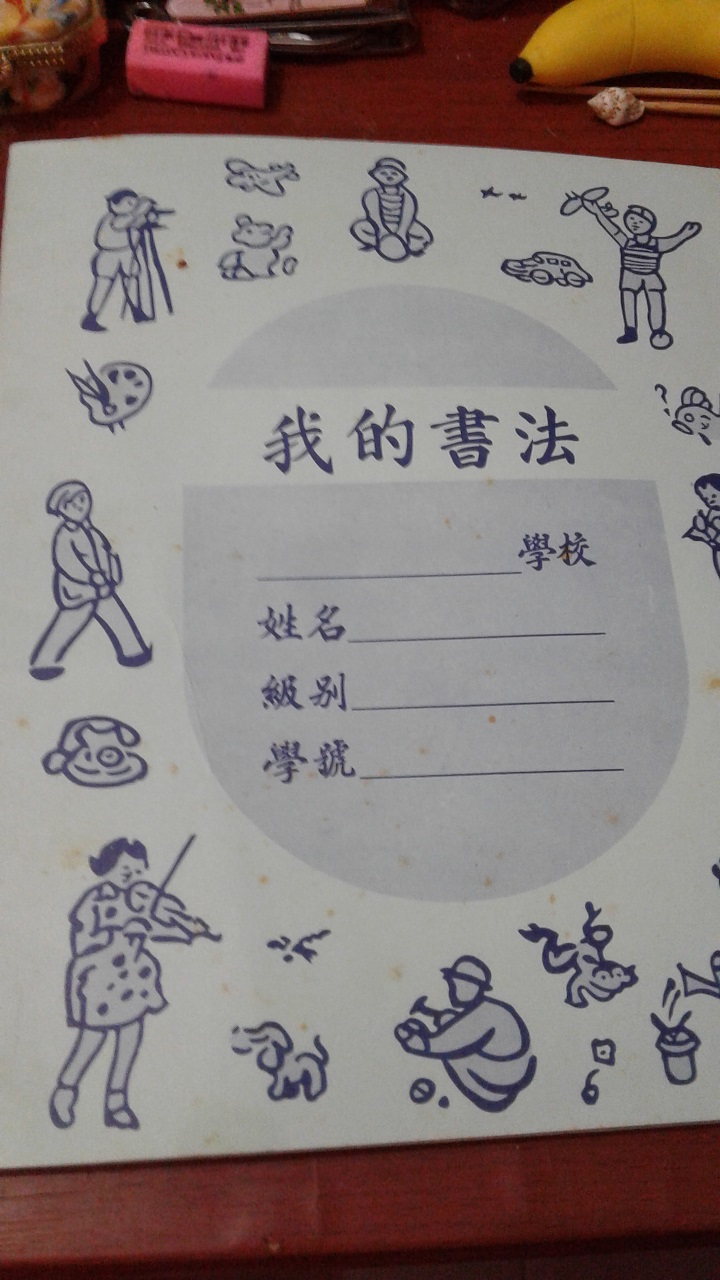 我的書法
學校
姓名
級別
學號